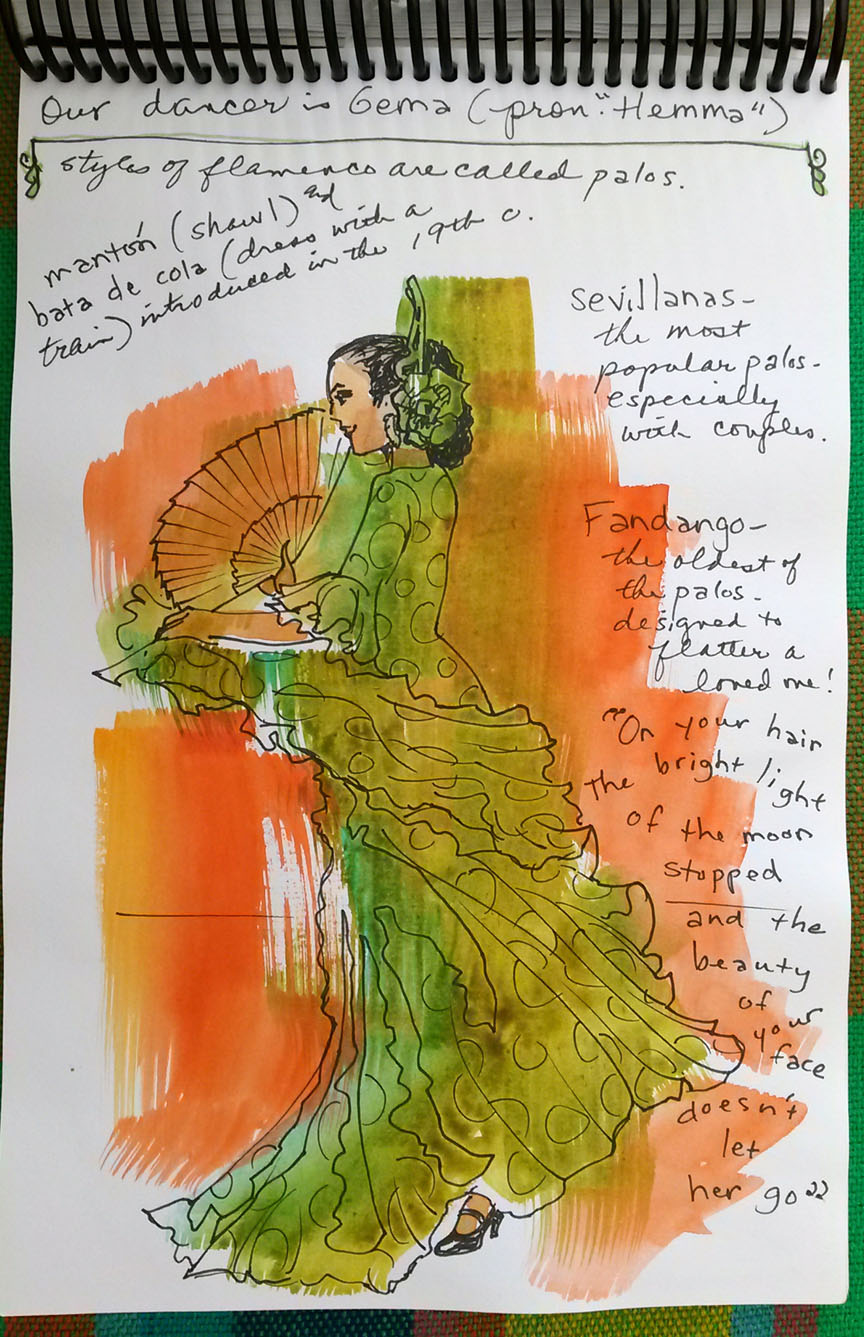 Our dancer is Gema (pron. "Hemma")
styles of flamenco are called palos.
mantón (shawl) and
bata de cola (dress with a
train) introduced in the 19th c.
Sevillanas-
the most
popular palos-
especially
with couples.
Fandango-
the oldest of
the palos-
designed to
flatter a
loved one!
"On your hair
the bright light
of the moon
stopped
and the
beauty
of
your
face
doesn't
let
her go"